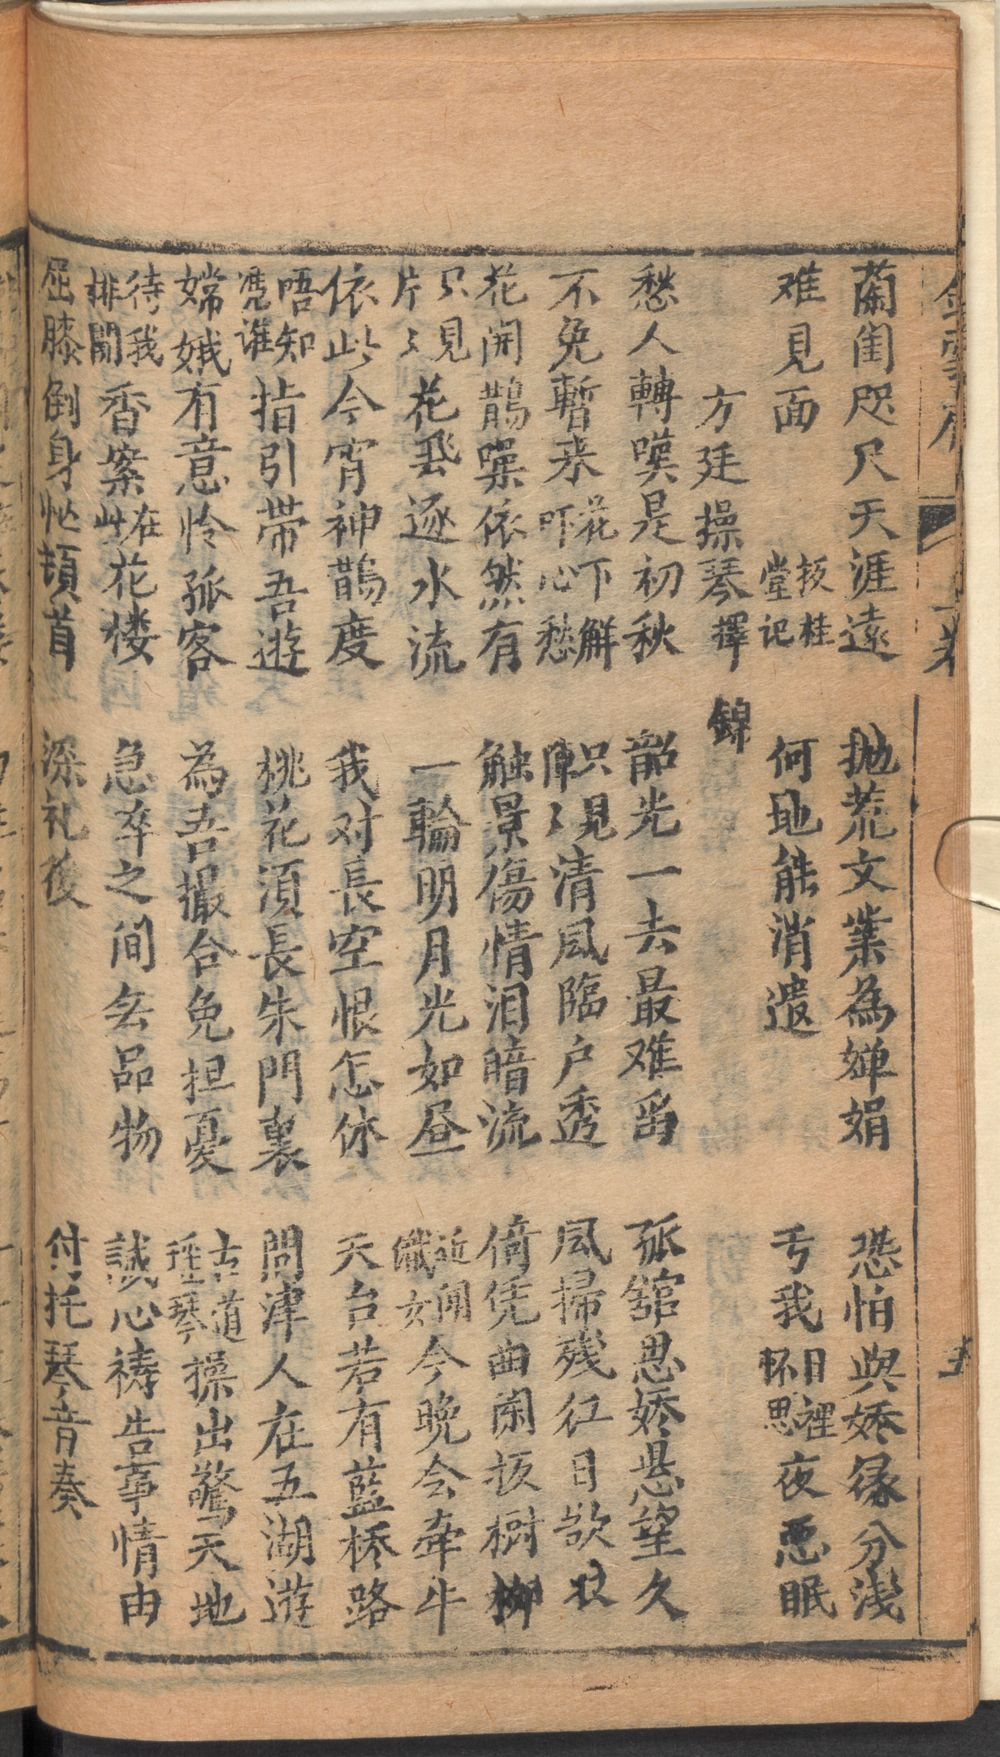 蘭闺咫尺天涯遠　抛荒文業為婵娟　恐怕與娇缘分浅
难見面　扳桂堂记　何地能消遣　亏我日裡怀思夜恶眠
方廷操琴擇錦
愁人轉嘆是初秋　韶光一去最难畄　孤舘思娇悬望久
不免暫来花下解吓心愁　只見陣〻清风臨户透　风掃残红日欲收
花開鵲噪依然有　触景傷情泪暗流　倚凭曲闲扳樹柳
只見片〻花飛逐水流　一輪明月光如昼　近聞織女今晚会牵牛
依此今宵神鵲度　我对長空恨怎休　天台若有藍桥路
唔知凴谁指引带吾遊　桃花須長朱門裏　問津人在五湖遊
嫦娥有意怜孤客　為吾撮合免担憂　古道瑶琴操出驚天地
待我排開香案在此花楼　急卒之间厺品物　誠心祷告事情由
屈膝倒身忙頓首　深礼後　付托琴音奏